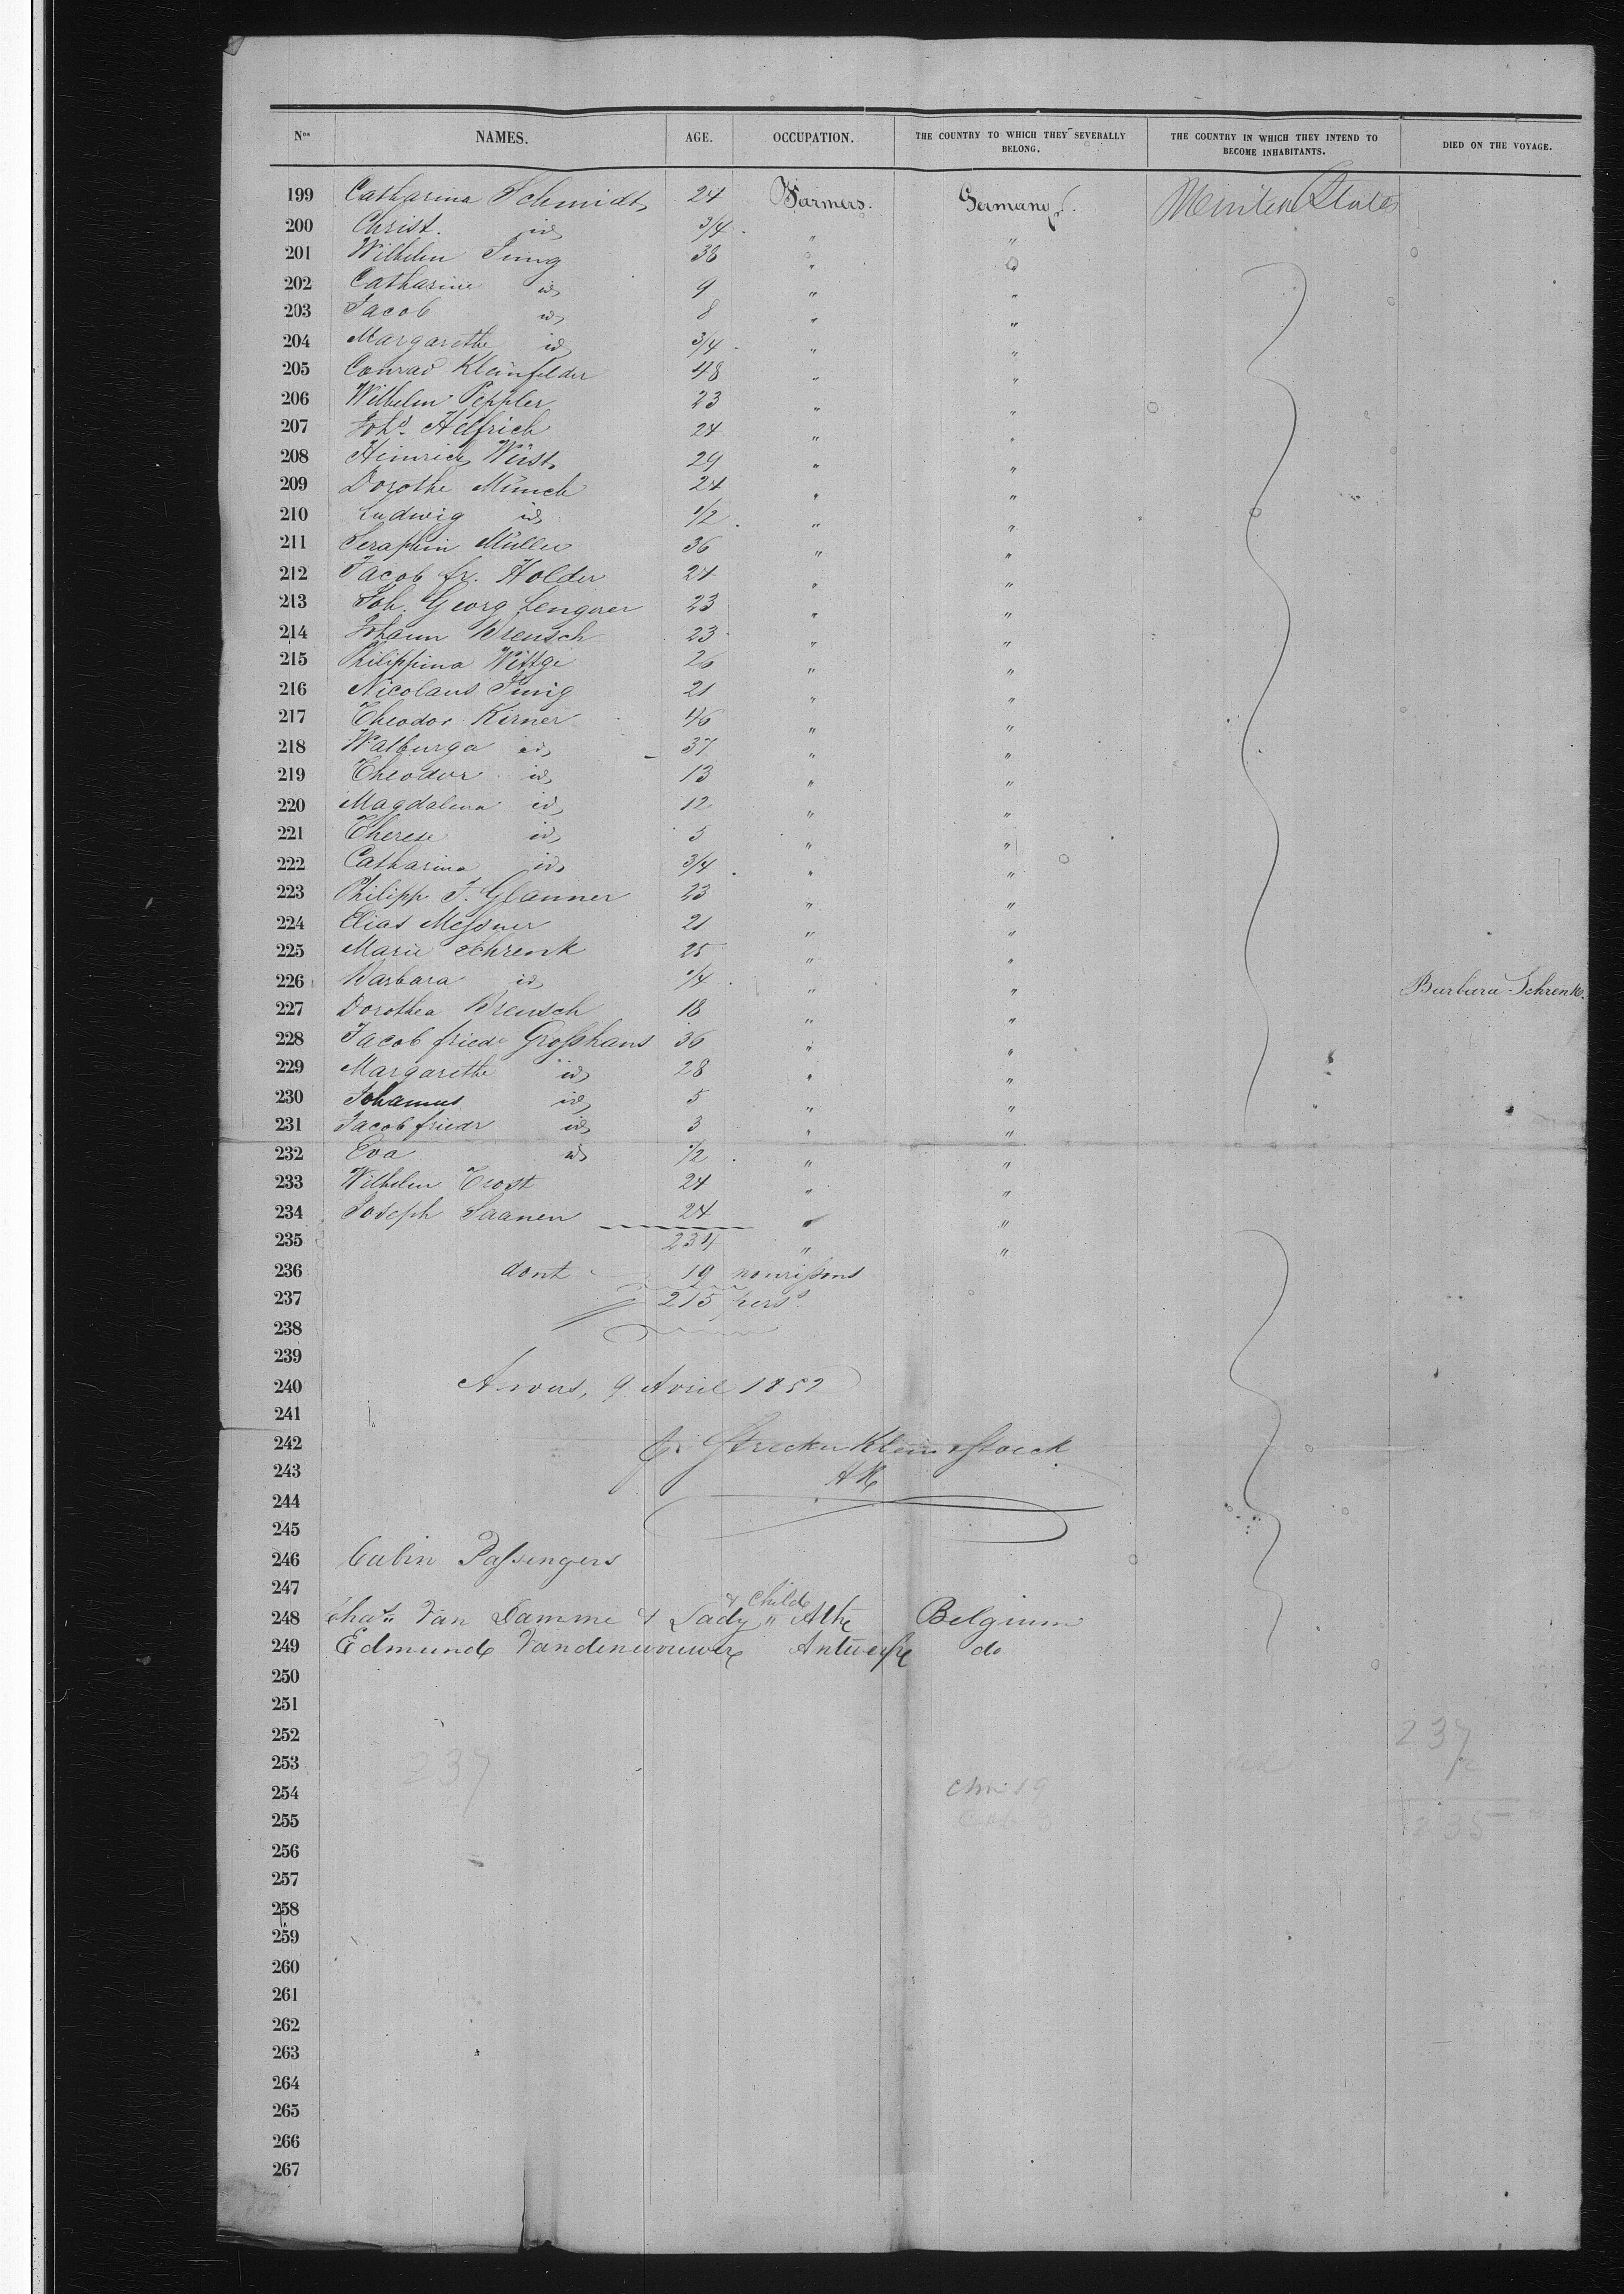 Nos NAMES. AGE. OCCUPATION. THE COUNTRY TO WHICH THEY SEVERALLY BELONG. THE COUNTRY IN WHICH THEY INTEND TO BECOME INHABITANTS. DIED ON THE VOYAGE.
199 Catharina Schmidt 24 Farmers. Germany. United States
200 Christ. id 3/4 " "
201 Wilhelm Jung 38 " "
202 Catharine id 9 " "
203 Jacob id 8 " "
204 Margarethe id 3/4 " "
205 Conrad Kleinfelder 48 " "
206 Wilhelm Peppler 23 " "
207 Johs. Helfrich 24 " "
208 Heinrich Wüst 29 " "
209 Dorothe Münch 24 " "
210 Ludwig id 1/2 " "
211 Seraphin Müller 36 " "
212 Jacob fr. Holder 24 " "
213 Joh. Georg Lengerer 23 " "
214 Johann Brensch 23 " "
215 Philippina Wittge 26 " "
216 Nicolaus Jung 21 " "
217 Theodor Kirner 46 " "
218 Walburga id 37 " "
219 Theodor id 13 " "
220 Magdalena id 12 " "
221 Therese id 5 " "
222 Catharina id 3/4 " "
223 Philipp J. Glanner 23 " "
224 Elias Messner 21 " "
225 Marie Schrenk 25 " "
226 Barbara id 1/4 " " Barbara Schrenk.
227 Dorothea Brensch 18 " "
228 Jacob friedr Grosshans 36 " "
229 Margarethe id 28 " "
230 Johannes id 5 " "
231 Jacob friedr id 3 " "
232 Eva id 1/2 " "
233 Wilhelm Trost 24 " "
234 Joseph Saanen 24 " "
235 234 " "
236 dont 19 nourissons
237 215 perss
238
239
240 Anvers, 9 Avril 1852
241
242 Strecker Klein & Stoeck
243 AK
244
245
246 Cabin Passengers
247 & Child
248 Chas. Van Damme & Lady " Belgium
249 Edmund Vandenwouwer Antwerp do
250
251
252 237
253 237 2
254 Chn 19
255 Cab 3 235
256
257
258
259
260
261
262
263
264
265
266
267